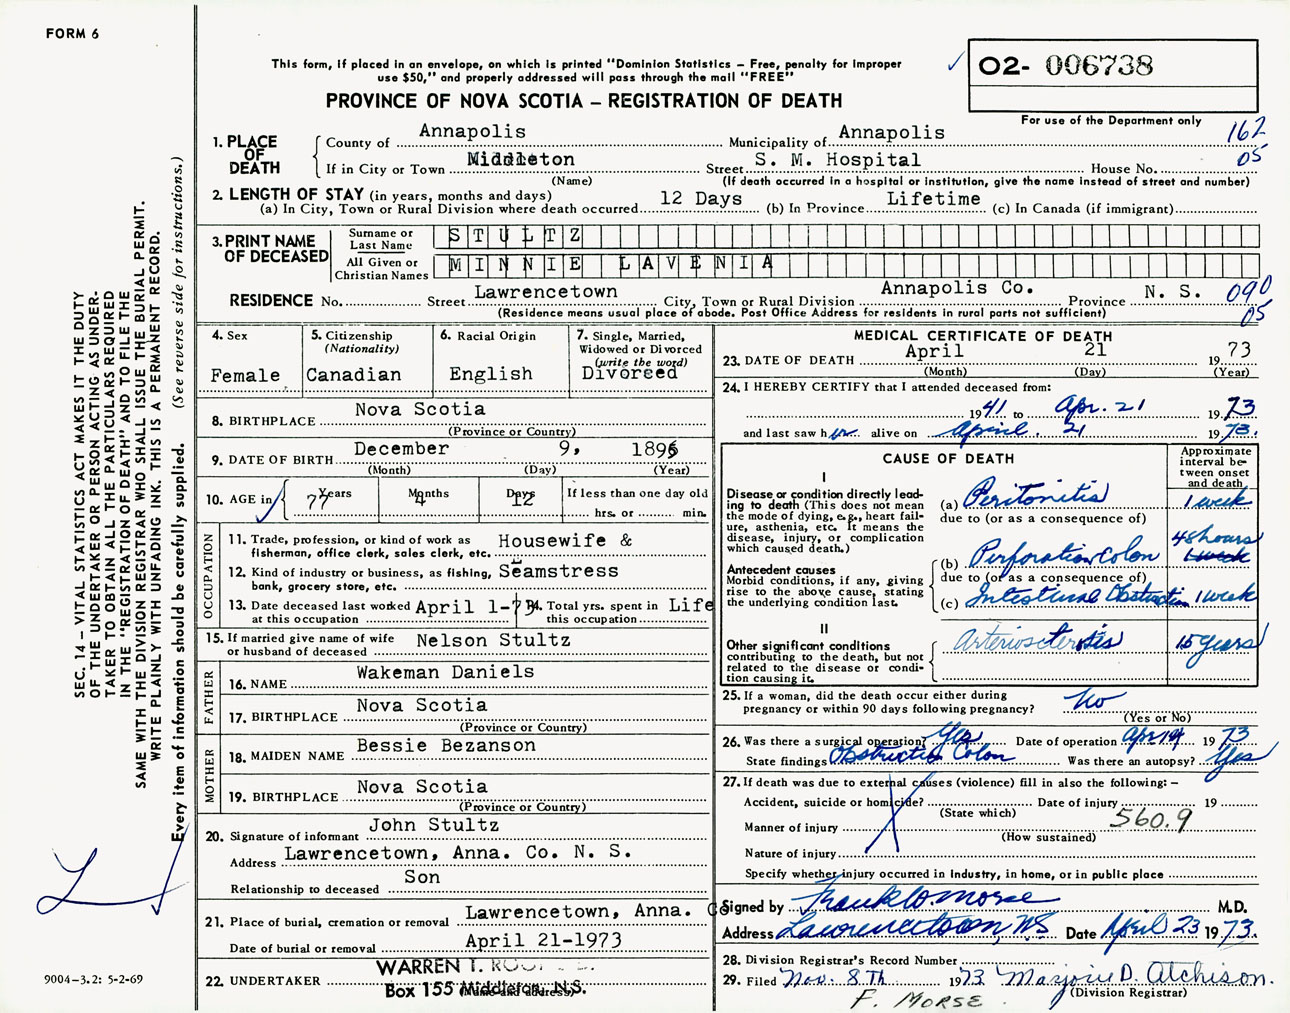 FORM 6
This form, if placed in an envelope, on which is printed "Dominion Statistics – Free, penalty for improper
use $50," and properly addressed will pass through the mail "FREE"
PROVINCE OF NOVA SCOTIA – REGISTRATION OF DEATH
O2- 006738
For use of the Department only
162
05
1. PLACE OF DEATH
County of Annapolis Municipality of Annapolis
If in City or Town Middleton Street S. M. Hospital House No.
(Name) (If death occurred in a hospital or institution, give the name instead of street and number)
2. LENGTH OF STAY (in years, months and days)
(a) In City, Town or Rural Division where death occurred 12 Days (b) In Province Lifetime (c) In Canada (if immigrant)
3. PRINT NAME OF DECEASED
Surname or Last Name STULTZ
All Given or Christian Names MINNIE LAVENIA
RESIDENCE No. Street Lawrencetown City, Town or Rural Division Annapolis Co. Province N. S.
090
05
(Residence means usual place of abode. Post Office Address for residents in rural parts not sufficient)
4. Sex
Female
5. Citizenship
(Nationality)
Canadian
6. Racial Origin
English
7. Single, Married,
Widowed or Divorced
(write the word)
Divorsed
8. BIRTHPLACE Nova Scotia
(Province or Country)
9. DATE OF BIRTH December 9, 1895
(Month) (Day) (Year)
10. AGE in Years Months Days If less than one day old
77 4 12 hrs. or min.
OCCUPATION
11. Trade, profession, or kind of work as Housewife &
fisherman, office clerk, sales clerk, etc.
12. Kind of industry or business, as fishing, Seamstress
bank, grocery store, etc.
13. Date deceased last worked April 1-73
at this occupation
14. Total yrs. spent in Life
this occupation
15. If married give name of wife Nelson Stultz
or husband of deceased
FATHER
16. NAME Wakeman Daniels
17. BIRTHPLACE Nova Scotia
(Province or Country)
MOTHER
18. MAIDEN NAME Bessie Bezanson
19. BIRTHPLACE Nova Scotia
(Province or Country)
20. Signature of informant John Stultz
Address Lawrencetown, Anna. Co. N. S.
Relationship to deceased Son
21. Place of burial, cremation or removal Lawrencetown, Anna. Co
Date of burial or removal April 21-1973
22. UNDERTAKER WARREN T.
Box 155 Middleton, N.S.
(Name and address)
MEDICAL CERTIFICATE OF DEATH
23. DATE OF DEATH April 21 1973
(Month) (Day) (Year)
24. I HEREBY CERTIFY that I attended deceased from:
1941 to Apr. 21 1973
and last saw her alive on April 21 1973.
CAUSE OF DEATH
Approximate interval between onset and death
I
Disease or condition directly lead-
ing to death (This does not mean
the mode of dying, e.g., heart fail-
ure, asthenia, etc. It means the
disease, injury, or complication
which caused death.)
(a) Peritonitis 1 week
due to (or as a consequence of)
48 hours
(b) Perforation Colon 1 week
due to (or as a consequence of)
(c) Intestinal Obstruction 1 week
Antecedent causes
Morbid conditions, if any, giving
rise to the above cause, stating
the underlying condition last.
II
Other significant conditions
contributing to the death, but not
related to the disease or condi-
tion causing it.
Arteriosclerotis 15 years
25. If a woman, did the death occur either during
pregnancy or within 90 days following pregnancy? No
(Yes or No)
26. Was there a surgical operation? Yes Date of operation Apr 14 1973
State findings Obstructio Colon Was there an autopsy? Yes
27. If death was due to external causes (violence) fill in also the following: –
Accident, suicide or homicide? Date of injury 19
(State which)
Manner of injury 560.9
(How sustained)
Nature of injury
Specify whether injury occurred in industry, in home, or in public place
Signed by Frank W. Morse M.D.
Address Lawrencetown, NS Date April 23 1973.
28. Division Registrar's Record Number
29. Filed Nov. 8 TH 1973 Marjorie D. Atchison.
(Division Registrar)
F. MORSE
SEC. 14 – VITAL STATISTICS ACT MAKES IT THE DUTY
OF THE UNDERTAKER OR PERSON ACTING AS UNDER-
TAKER TO OBTAIN ALL THE PARTICULARS REQUIRED
IN THE "REGISTRATION OF DEATH" AND TO FILE THE
SAME WITH THE DIVISION REGISTRAR WHO SHALL ISSUE THE BURIAL PERMIT.
WRITE PLAINLY WITH UNFADING INK. THIS IS A PERMANENT RECORD.
Every item of information should be carefully supplied. (See reverse side for instructions.)
9004–3.2: 5-2-69